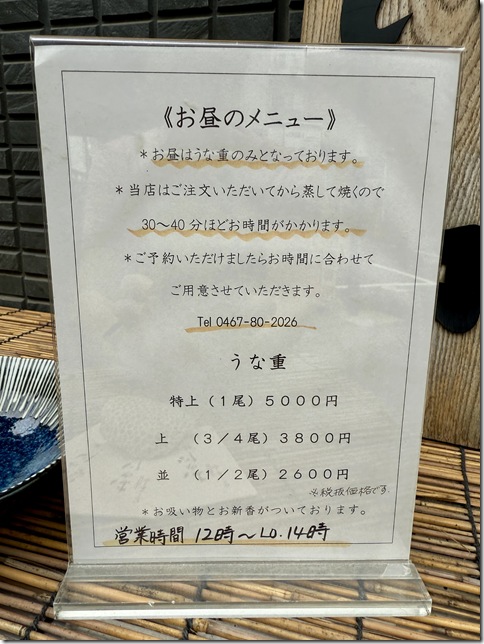 《お昼のメニュー》
＊お昼はうな重のみとなっております。
＊当店はご注文いただいてから蒸して焼くので
30～40分ほどお時間がかかります。
＊ご予約いただけましたらお時間に合わせて
ご用意させていただきます。
Tel 0467-80-2026
うな重
特上（1尾）5000円
上　（3/4尾）3800円
並　（1/2尾）2600円
※税抜価格です
＊お吸い物とお新香がついております。
営業時間 12時～LO.14時